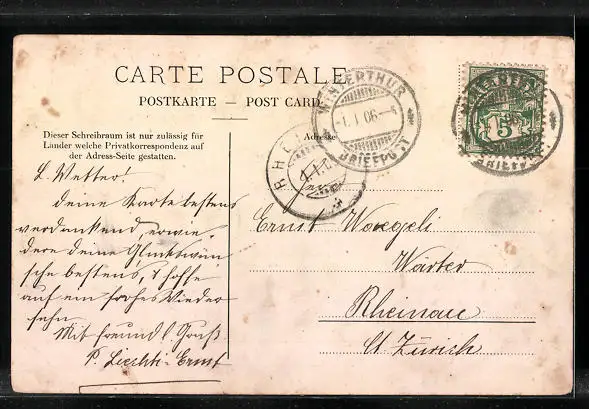 CARTE POSTALE
POSTKARTE — POST CARD
Dieser Schreibraum ist nur zulässig für
Länder welche Privatkorrespondenz auf
der Adress-Seite gestatten.
Adresse
WINTERTHUR
1.I.06-5
BRIEFPOST
RHE
1.I.0
WINTERTHUR
BRIEFPOST
5
L. Vetter!
deine Karte bestens
verdankend, erwie
dere deine Glückswün
sche bestens, & hoffe
auf ein frohes Wieder
sehn
Mit freundl. Gruß.
P. Liechti-Ernst
Ernst
Wärter
Rheinau
Ct. Zürich